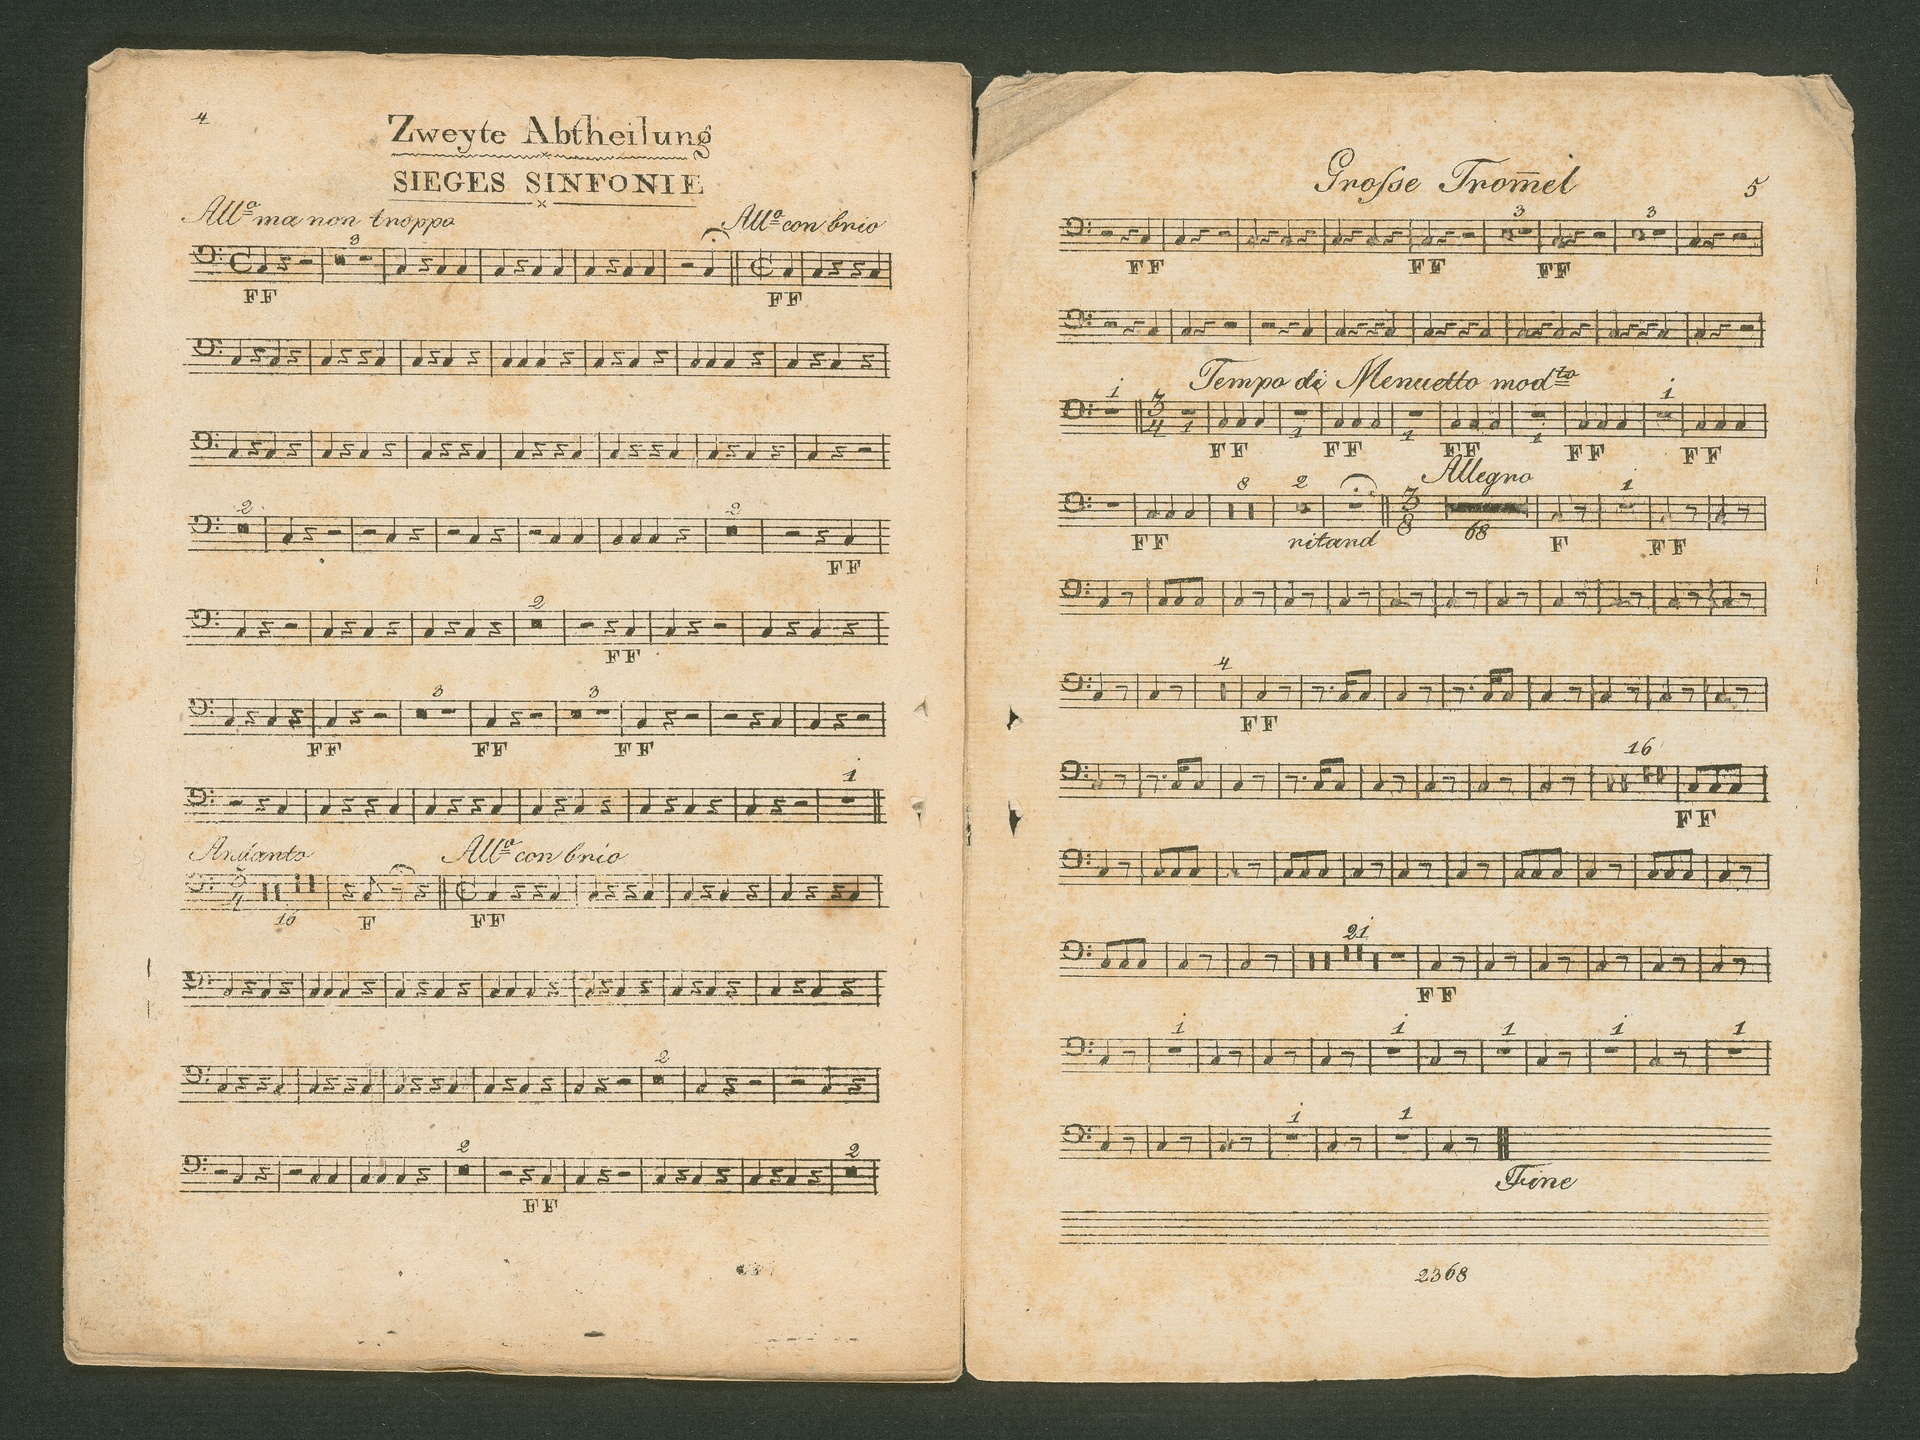 4
Zweyte Abtheilung
SIEGES SINFONIE
All.º ma non troppo All.º con brio
3
FF FF
2 2
FF
2
FF
3 3
FF FF FF
1
Andante All.º con brio
3
4
16 F FF
2
2 2
FF
Grosse Trom̅el 5
3 3
FF FF FF
Tempo di Menuetto mod.to
1 1
3
4
1 1 1 1
FF FF FF FF FF
Allegro
8 2 1
3
8
FF ritand 68 F FF
4
FF
16
FF
21
FF
1 1 1 1 1
1 1
Fine
2368